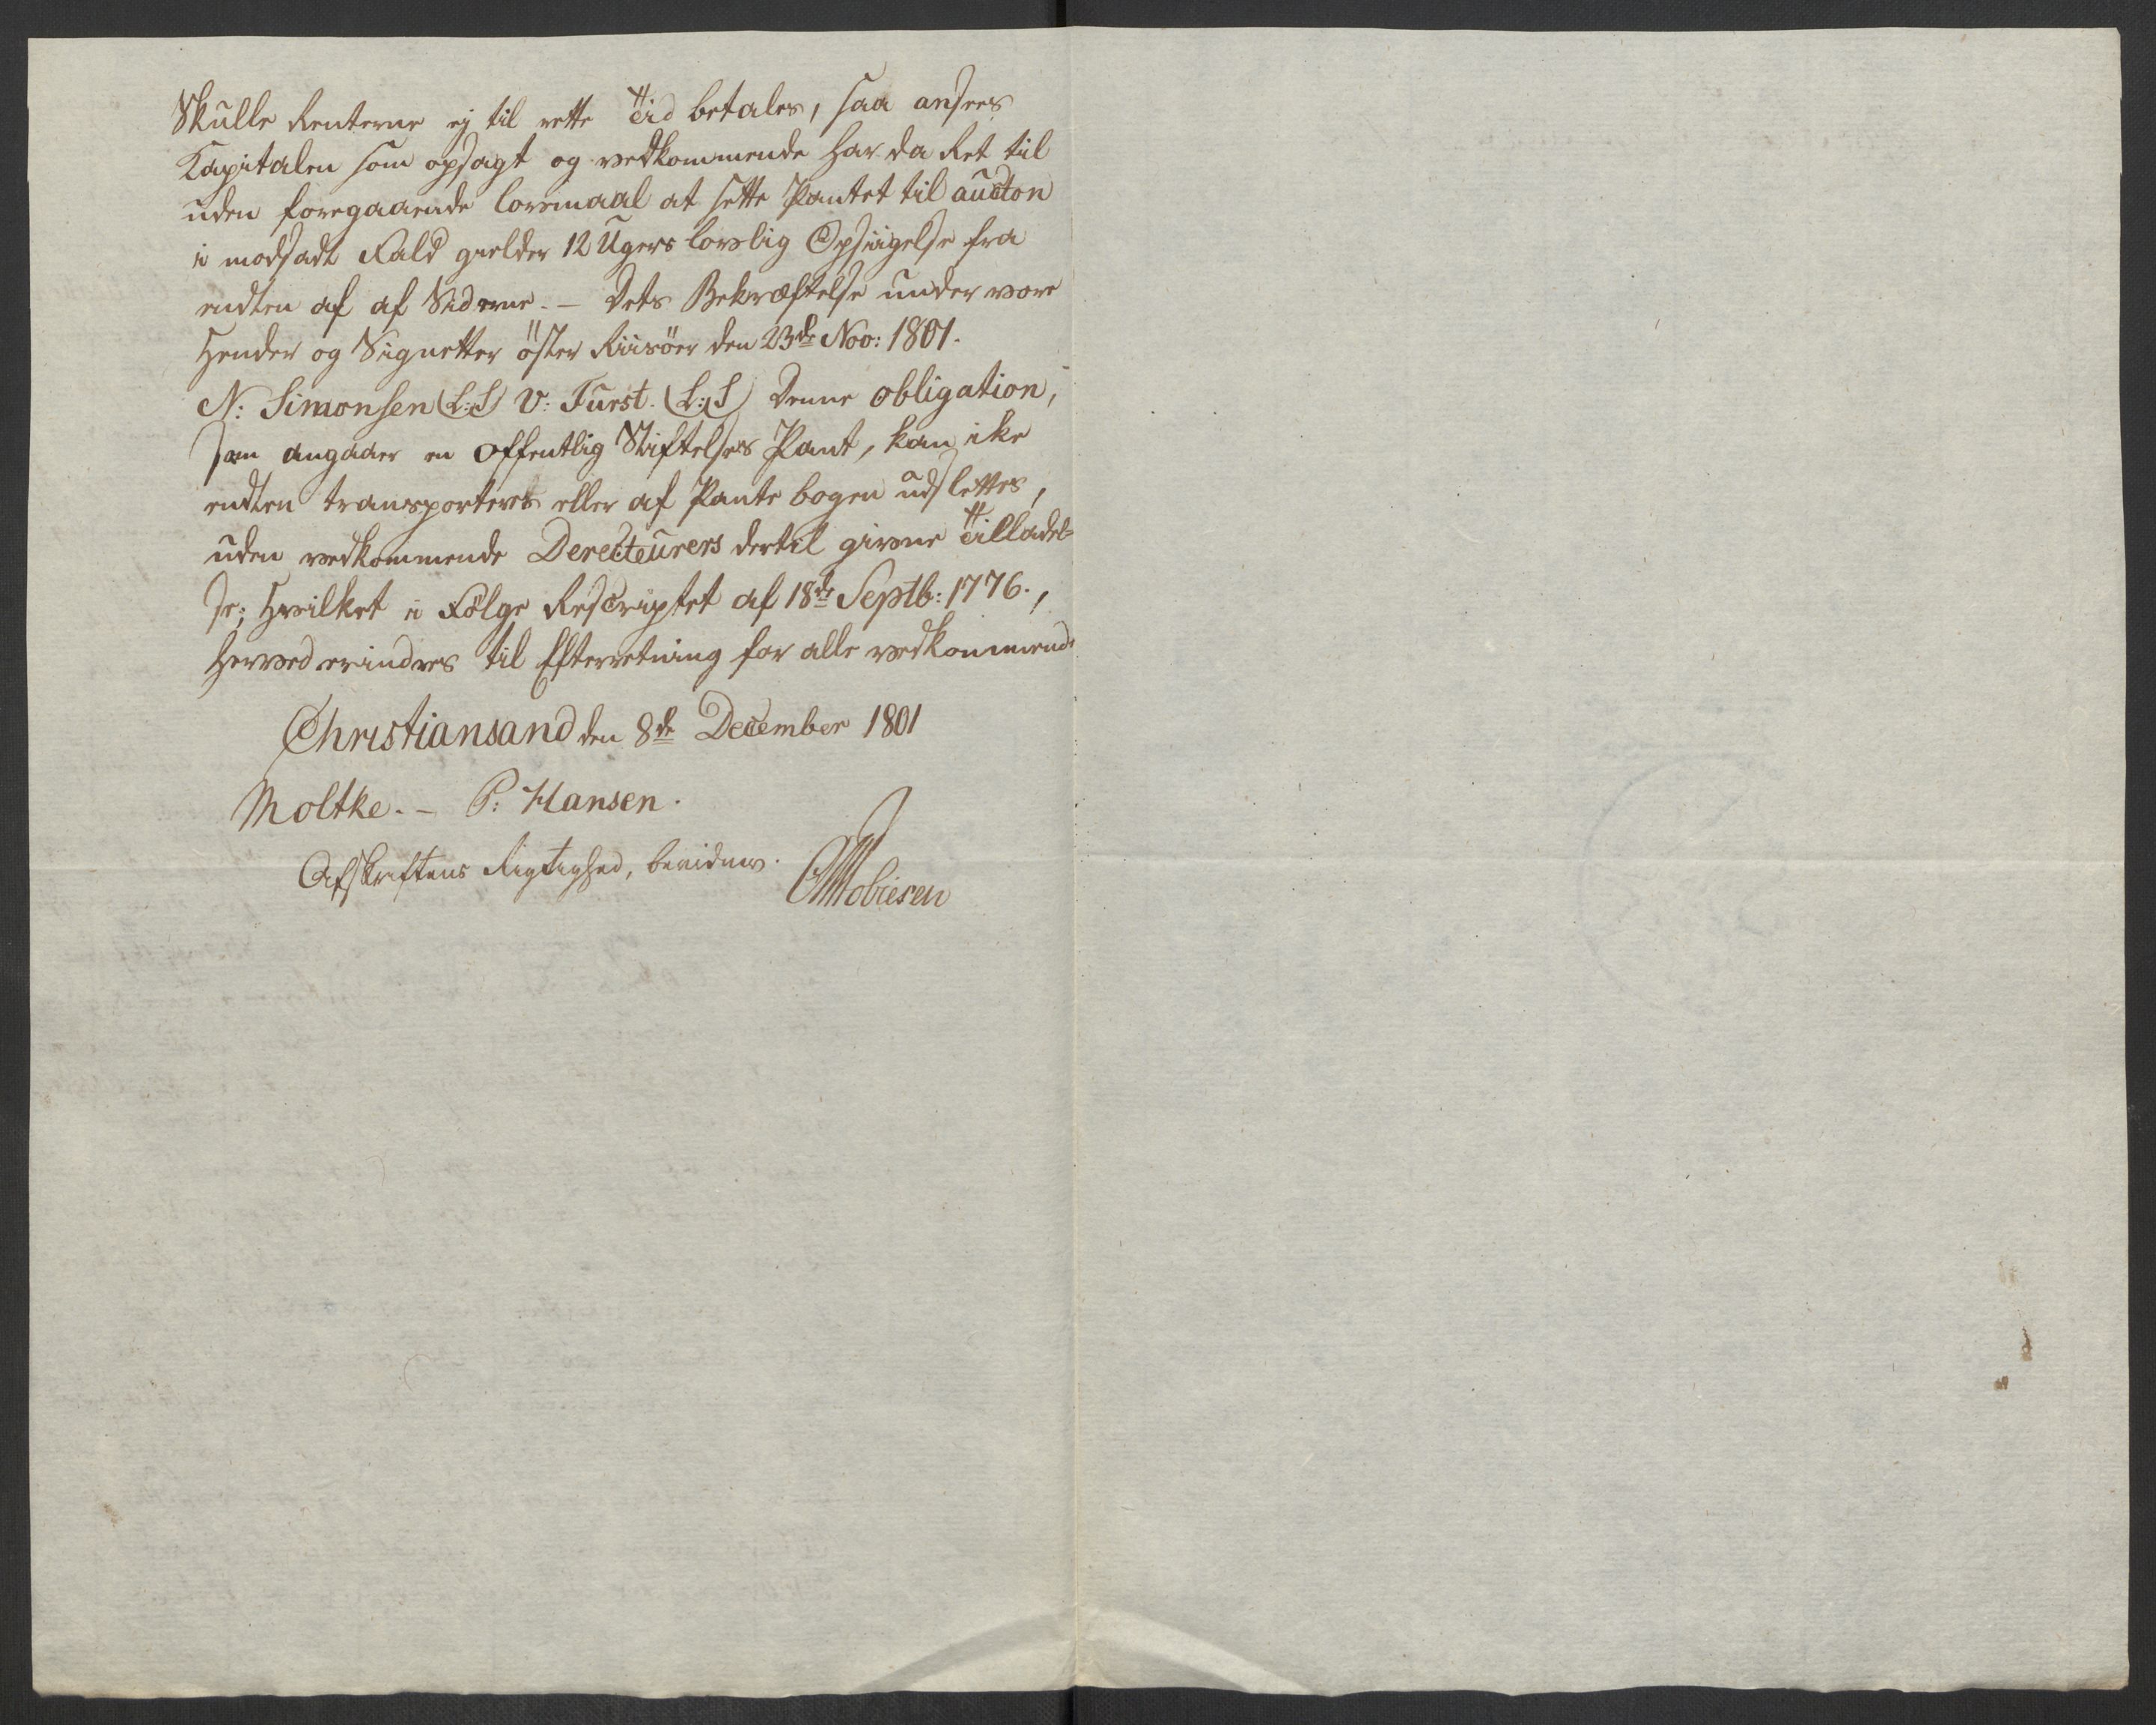 Skulle Renterne ej til rette Tid betales, saa ansees
Kapitalen som opsagt og vedkommende har da Ret til
uden foregaaende lovmaal at sette Pantet til auction
i modsadt Fald gielder 12 Ugers lovlig Opsiigelse fra
endten af af Siderne. – Dets Bekræftelse under vore
Hender og Signetter öster Riisöer den 23de Nov: 1801.
N: Simonsen (L:S) V: Furst. (L:S) Denne Obligation,
som angaaer en offentlig Stiftelses Pant, kan ike
endten transporteres eller af Pante bogen udslettes,
uden vedkommende Derecteurers dertil givne Tilladel-
se; Hvilket i Fölge Rescriptet af 18de Septb: 1776.,
herved erindres til Efterretning for alle vedkommende
Christiansand den 8de December 1801
Moltke. – P: Hansen.
Afskriftens Rigtighed, bevidner.